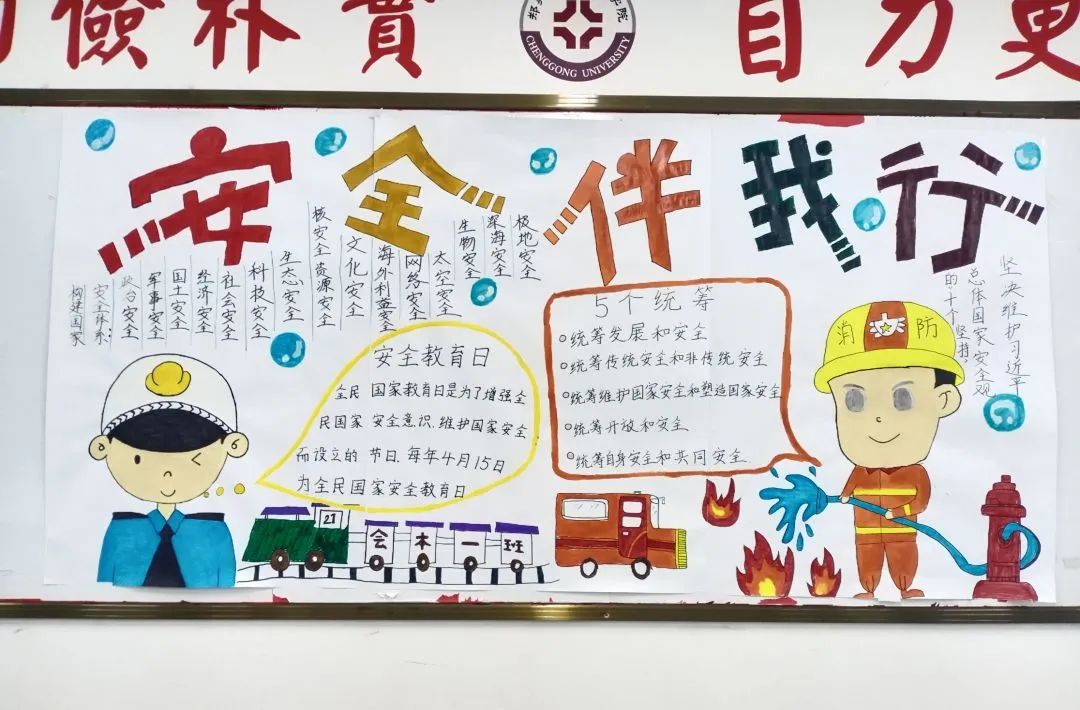 儉朴實
郑
学院
CHENGGONG UNIVERSITY
自力更
安全伴我行
构建国家
安全体系:
政治安全
军事安全
国土安全
经济安全
社会安全
科技安全
生态安全
核安全
资源安全
文化安全
海外利益安全
网络安全
太空安全
生物安全
深海安全
极地安全
安全教育日
全民 国家教育日是为了增强全
民国家 安全意识.维护国家安全
而设立的 节日.每年4月15日
为全民国家安全教育日
5个统筹
统筹发展和安全
统筹传统安全和非传统安全
统筹维护国家安全和塑造国家安全
统筹开放和安全
统筹自身安全和共同安全
坚决维护习近平
总体国家安全观
的十个坚持
消防
21
会本一班